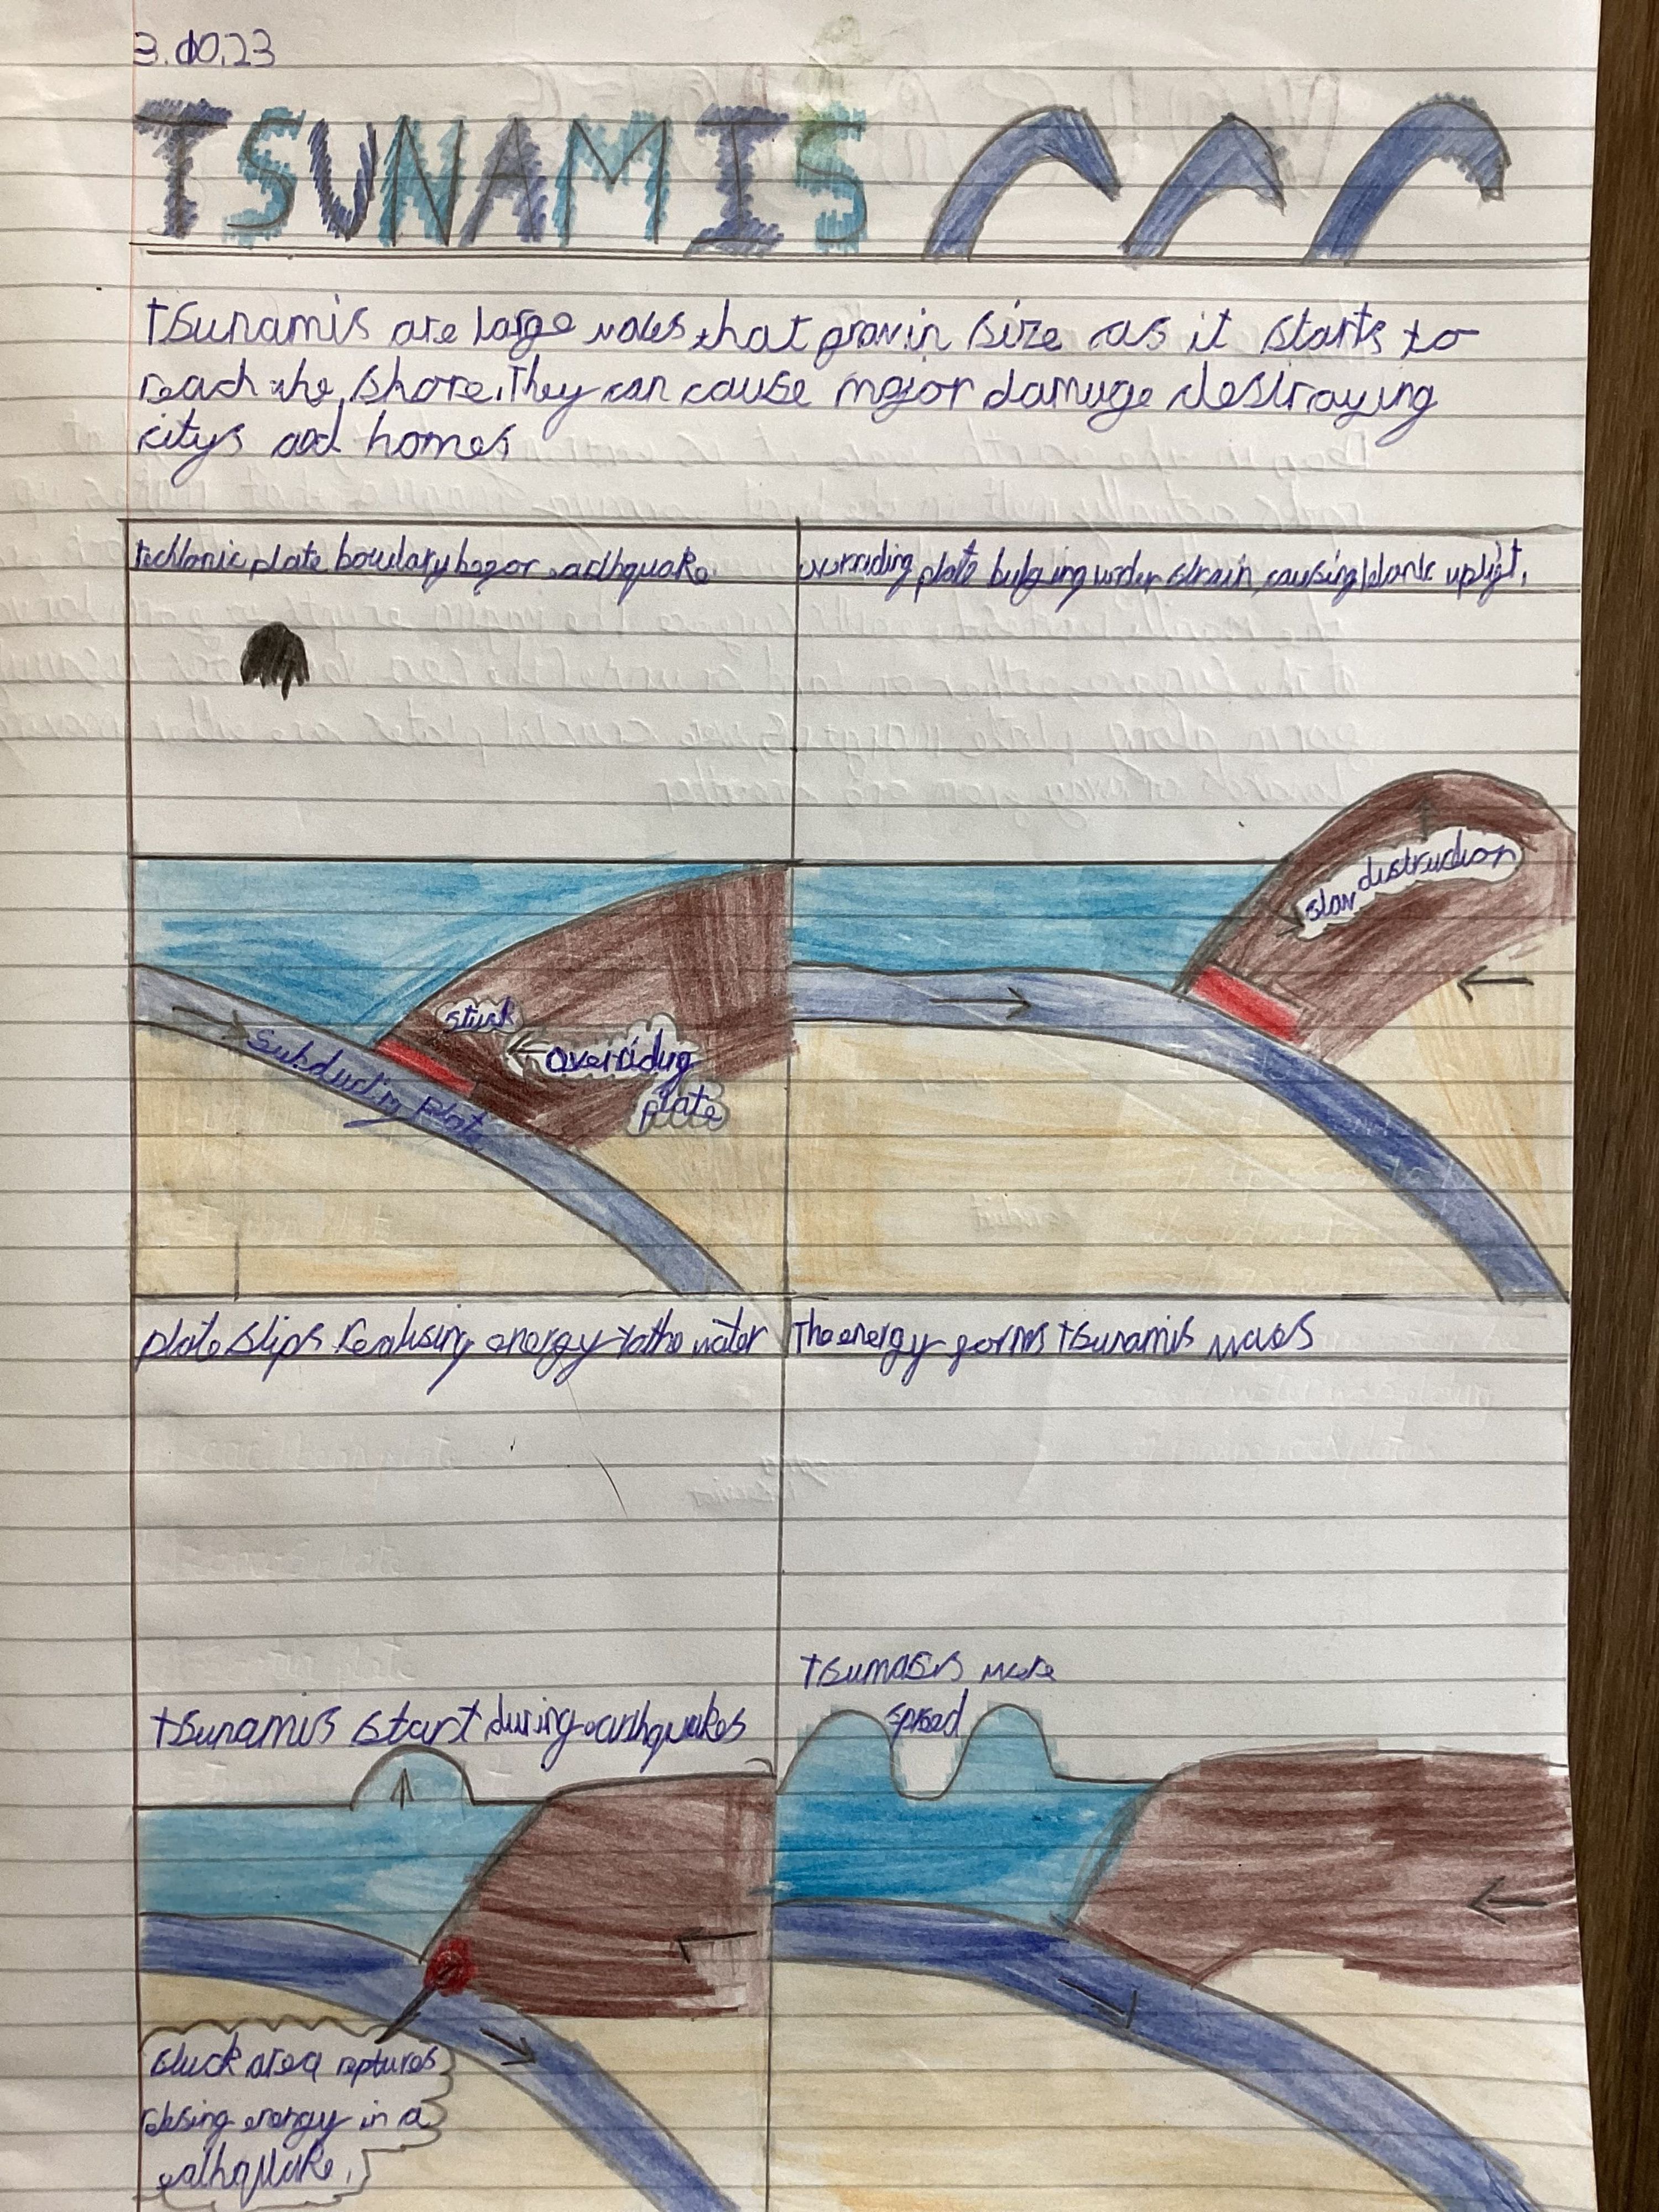 3.10.23
TSUNAMIS
Tsunamis are large waves that grow in size as it starts to
reach the shore. They can cause major damuge destraying
citys and homes
techtonic plate boundary befor earthquake
overriding plate bulging under strain, causing uplift.
slow distruction
stuck
overriding
plate
Subducting plate
plate slips realising energy to the water
The energy forms tsunamis waves
tsunamis start during earthquakes
spread
stuck area reptures
relesing energy in a
earthquake.